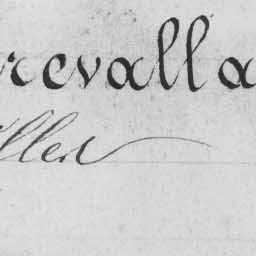 revalla
lled